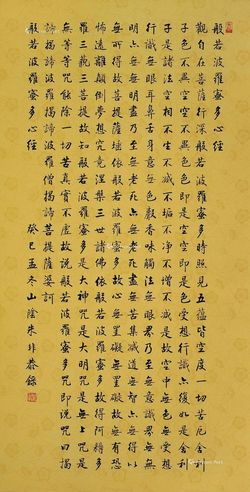 般若波羅蜜多心經
觀自在菩薩行深般若波羅蜜多時照見五蘊皆空度一切苦厄舍利
子色不異空空不異色色即是空空即是色受想行識亦復如是舍利
子是諸法空相不生不滅不垢不淨不增不減是故空中無色無受想
行識無眼耳鼻舌身意無色聲香味觸法無眼界乃至無意識界無無
明亦無無明盡乃至無老死亦無老死盡無苦集滅道無智亦無得以
無所得故菩提薩埵依般若波羅蜜多故心無罣礙無罣礙故無有恐
怖遠離顛倒夢想究竟涅槃三世諸佛依般若波羅蜜多故得阿耨多
羅三藐三菩提故知般若波羅蜜多是大神咒是大明咒是無上咒是
無等等咒能除一切苦真實不虛故說般若波羅蜜多咒即說咒曰揭
諦揭諦波羅揭諦波羅僧揭諦菩提薩婆訶
般若波羅蜜多心經
癸巳孟冬山陰朱非恭錄